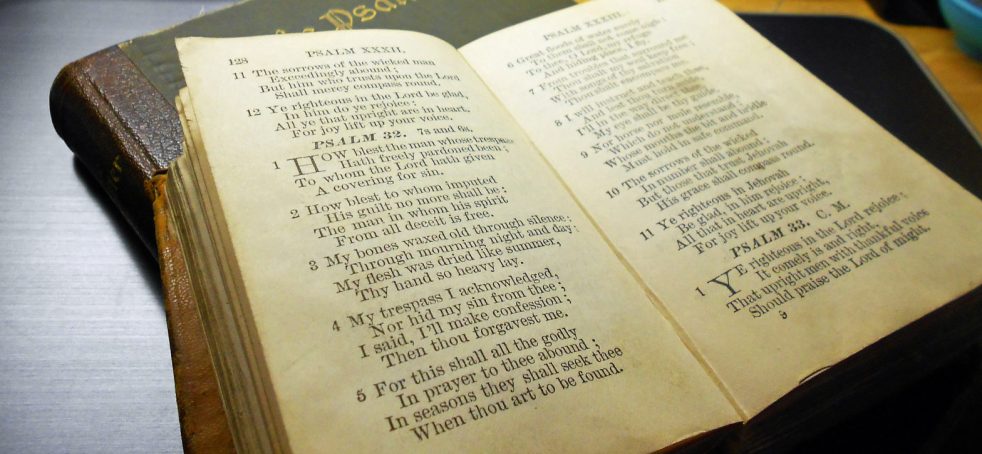 Psal
128
PSALM XXXII.
11 The sorrows of the wicked man
Exceedingly abound;
But him who trusts upon the Lord
Shall mercy compass round.
12 Ye righteous in the Lord be glad,
In him do ye rejoice:
All ye that upright are in heart,
For joy lift up your voice.
PSALM 32. 7s and 6s.
1 HOW blest the man whose trespass
Hath freely pardoned been;
To whom the Lord hath given
A covering for sin.
2 How blest to whom imputed
His guilt no more shall be;
The man in whom his spirit
From all deceit is free.
3 My bones waxed old through silence;
Through mourning night and day:
My flesh was dried like summer,
Thy hand so heavy lay.
4 My trespass I acknowledged,
Nor hid my sin from thee;
I said, I'll make confession;
Then thou forgavest me.
5 For this shall all the godly
In prayer to thee abound;
In seasons they shall seek thee
When thou art to be found.
PSALM XXXIII.
6 Great floods of water surely
To them shall not come nigh;
To thee
And hiding
7 From troubles thou wilt keep me free;
With songs of
Thou shalt
8 I will instruct and teach thee,
I'll in the
My eye shall be thy guide.
9 Nor horse nor mule resemble,
Which do not understand
Whose mouths the bit and bridle
Must hold in safe command.
10 The sorrows of the wicked
In number shall abound;
But those that trust Jehovah
His grace shall compass round.
11 Ye righteous in Jehovah
Be glad, in him rejoice;
All that in heart are upright,
For joy lift up your voice.
PSALM 33. C. M.
1 YE righteous in the Lord rejoice;
It comely is and right,
That upright men with thankful voice
Should praise the Lord of might.
9